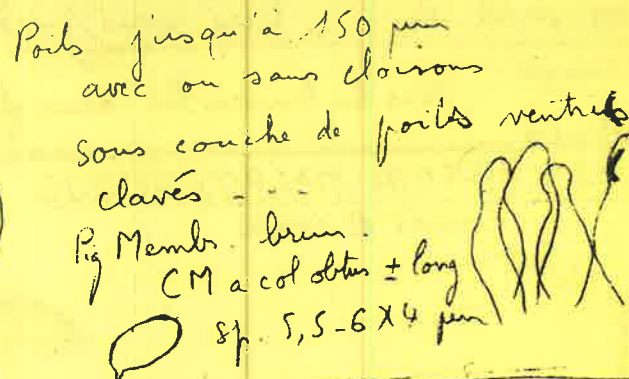 Poils jusqu'à 150 µm
avec ou sans cloisons
sous couche de poils ventrus
clavés - - -
Pig Membr. brun.
CM a col obtus ± long
sp. 5,5-6 X 4 µm